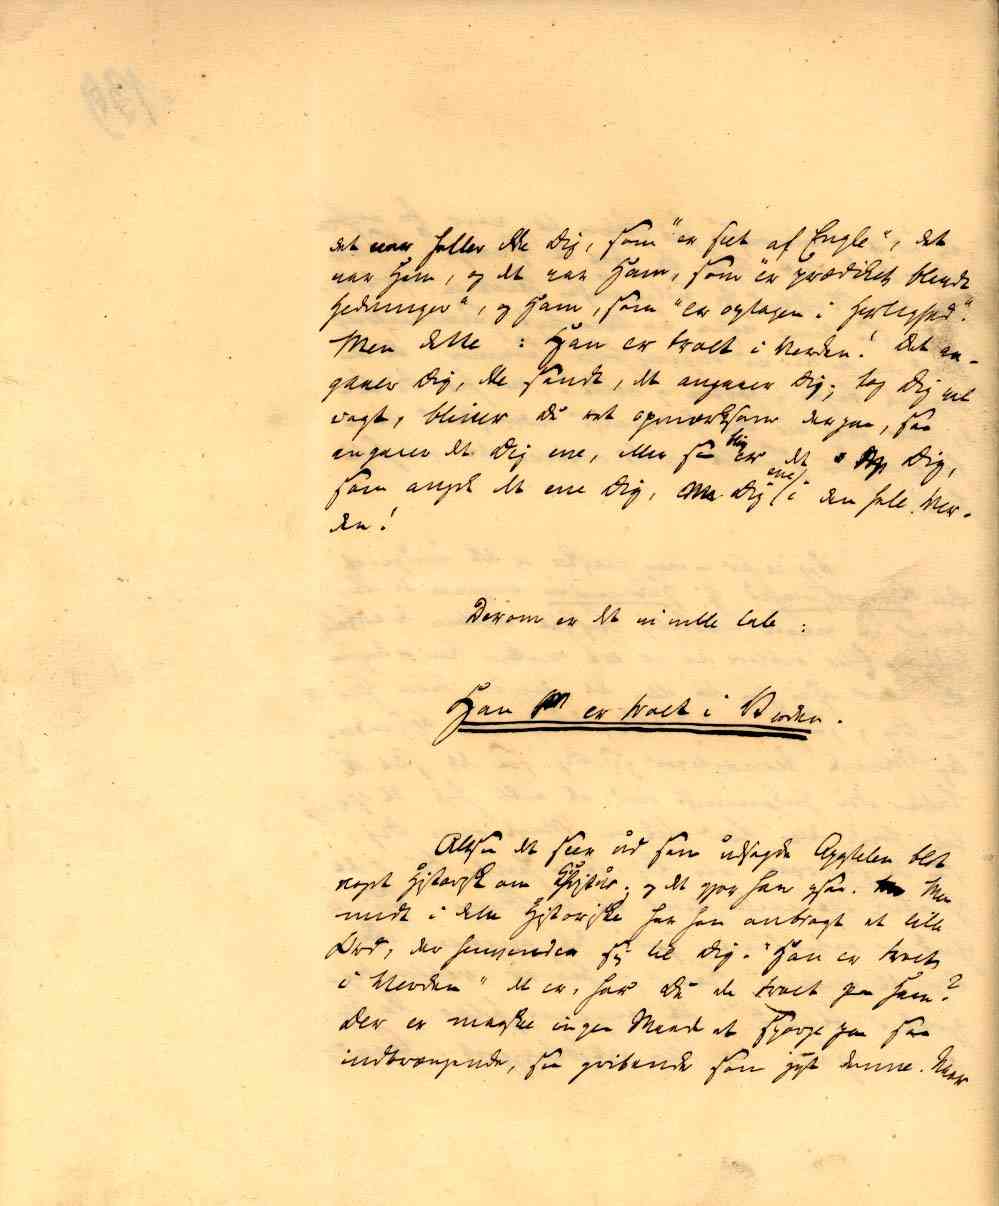 det var heller ikke Dig, som "er seet af Engle", det
var Ham, og det var Ham, som "er prædiket blandt
Hedninger", og Ham, som "er optagen i Herlighed".
Men dette : Han er troet i Verden! Det an-
gaaer Dig, ikke sandt, det angaaer Dig; tag Dig vel
vagt, bliver Du ret opmærksom derpaa, saa
angaaer det Dig ene, eller saa bliv er det Dig,
som angik det ene Dig, Dig ene i den hele Ver-
den!
Derom er det vi ville tale :
Han er troet i Verden.
Altsaa det seer ud som udsagde Apostelen blot
noget Historisk om Christus; og det gjør han ogsaa. Men
midt i dette Historiske har han anbragt et lille
Ord, der henvender sig til Dig. "Han er troet
i Verden" det er, har Du da troet paa Ham?
Der er maaskee ingen Maade at spørge paa saa
indtrængende, saa gribende som just denne. Naar